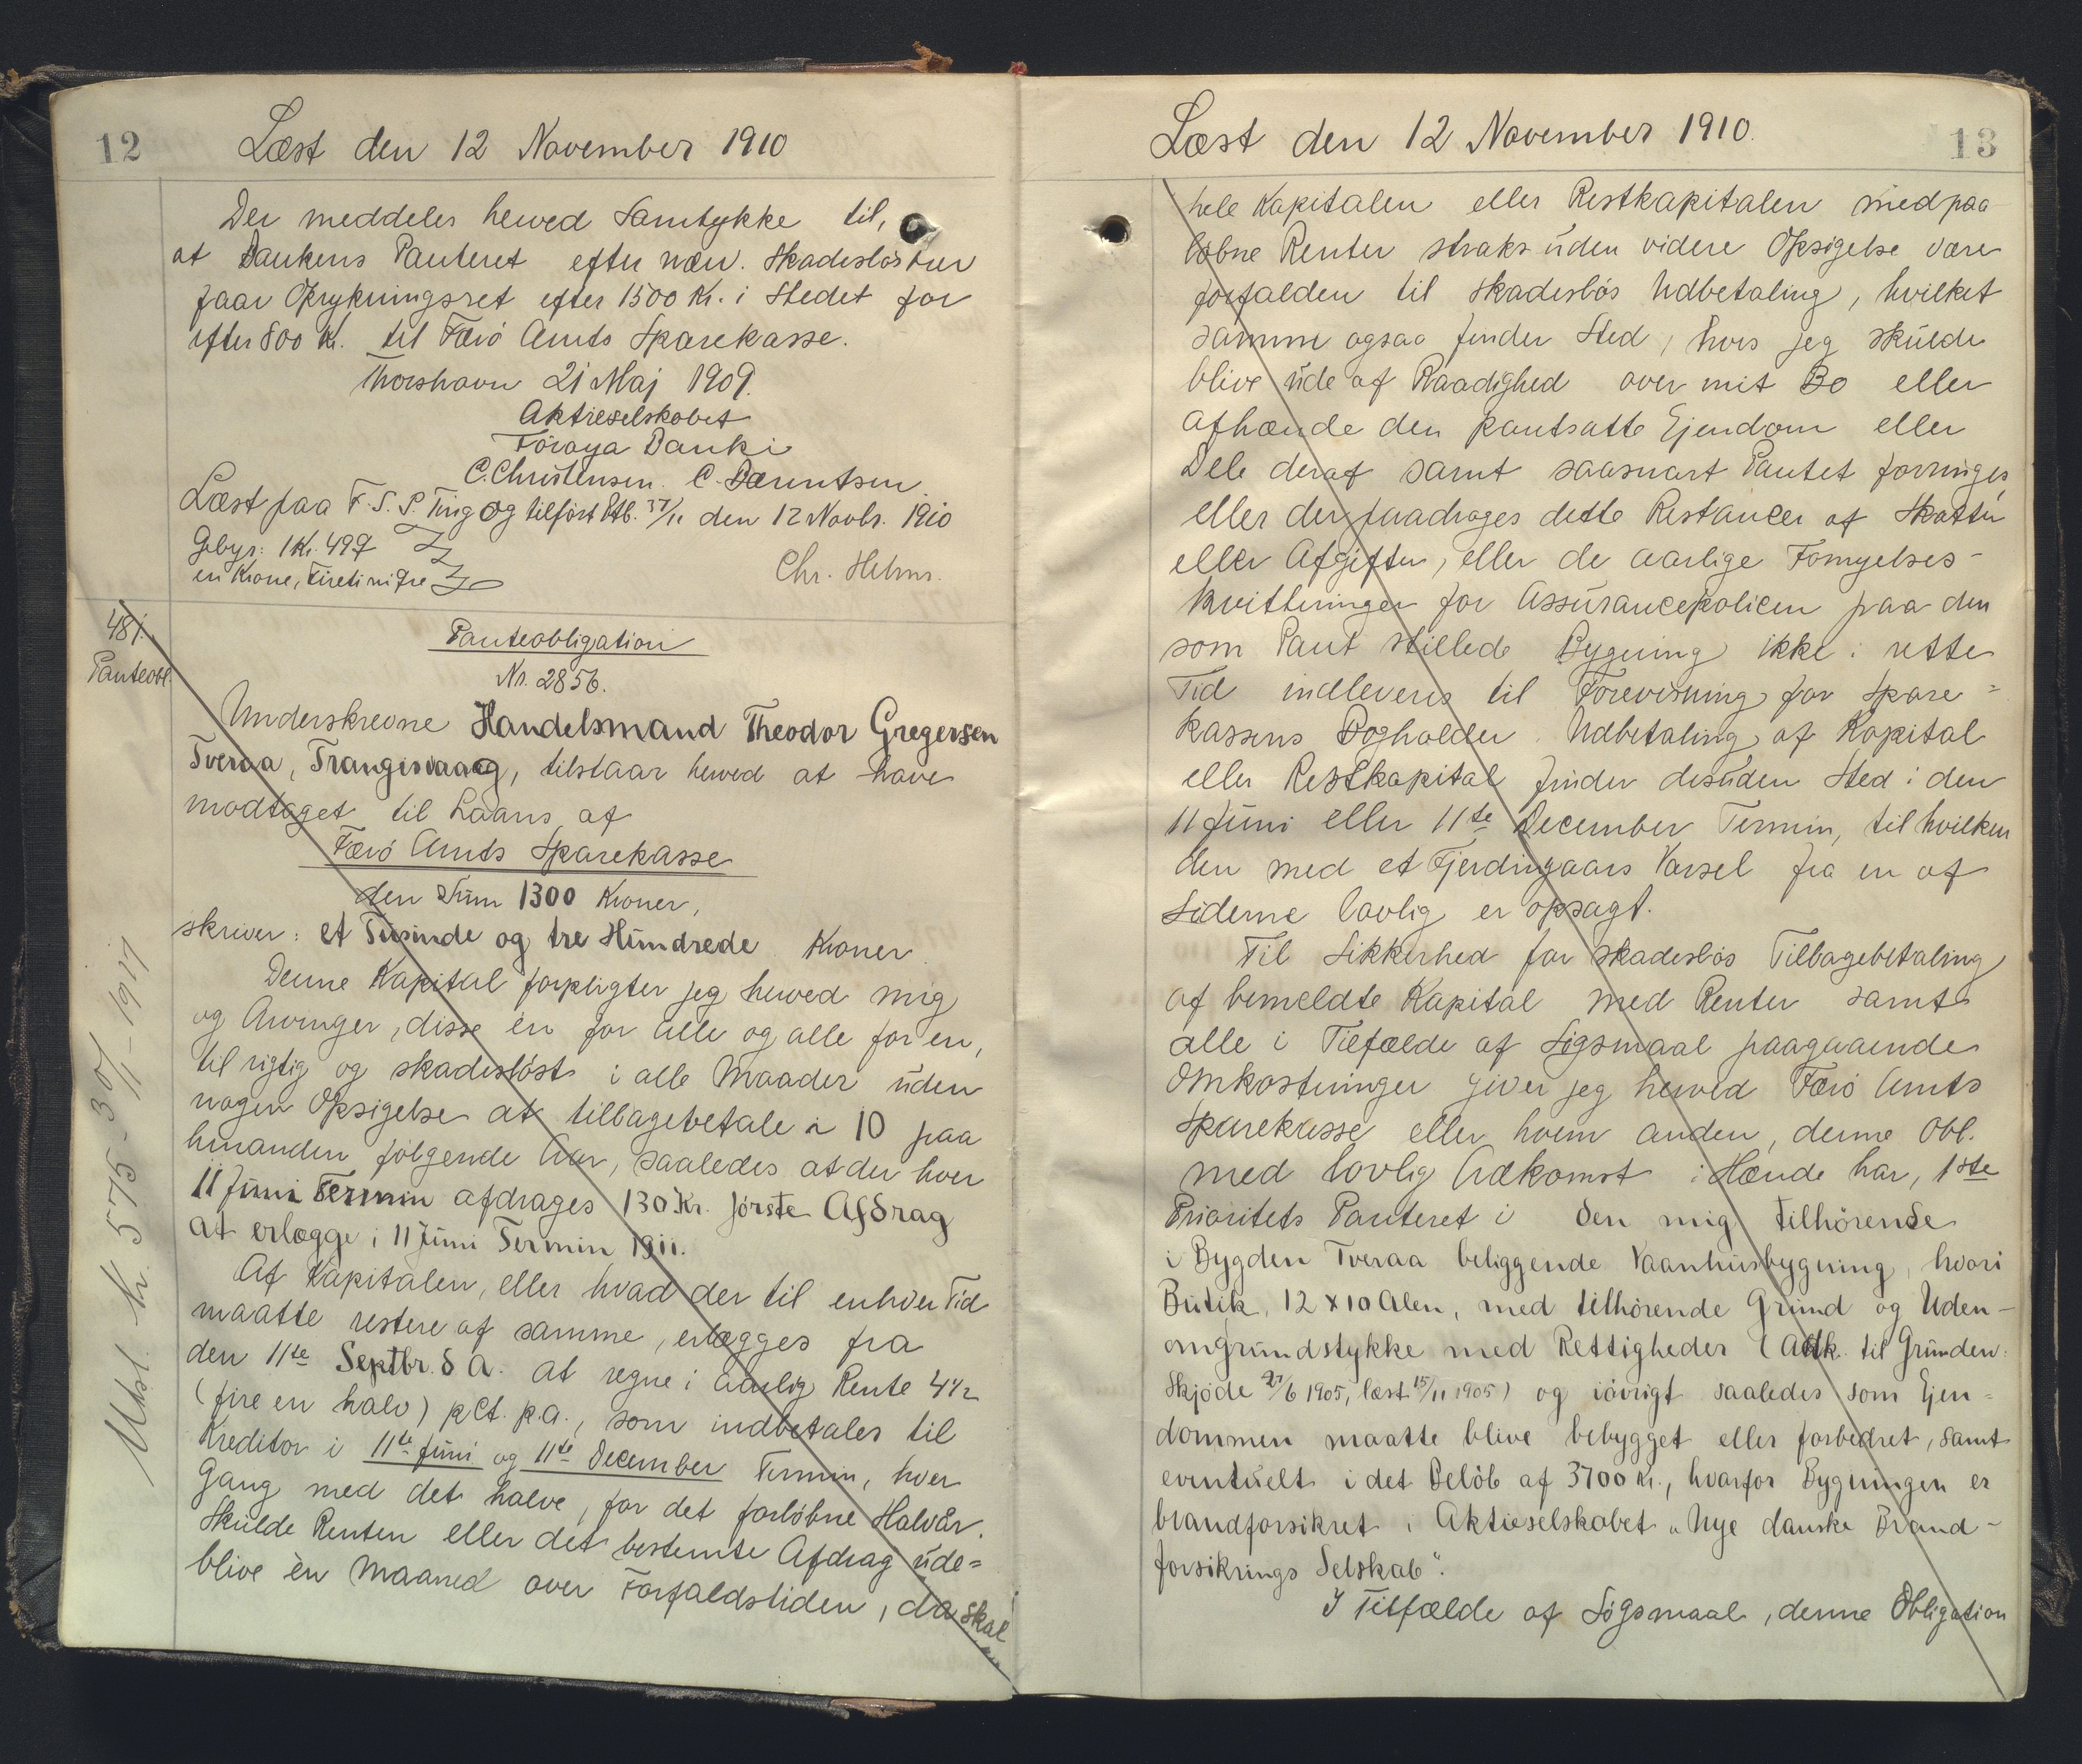 12
Læst den 12 November 1910
Der meddeles herved Samtykke til,
at Bankens Panteret efter næv. Skadesløsbrev
faar Oprykningsret efter 1500 Kr. i Stedet for
efter 800 Kr. til Færö Amts Sparekasse.
Thorshavn 21 Maj 1909.
Aktieselskabet
Föroya Banki
C. Christensen. C. Bærentsen.
Læst paa F. S. P. Ting og tilført Ptb. den 12 Novbr. 1910
Gebyr: 1 Kr. 49 Ø
en Krone, Firetini Øre
Chr. Helms.
48/.
Panteobl.
Panteobligation
Nr. 2856.
Underskrevne Handelsmand Theodor Gregersen
Tveraa, Trangisvaag, tilstaar herved at have
modtaget til Laans af
Færö Amts Sparekasse
den Sum 1300 Kroner,
skriver: et Tusinde og tre Hundrede Kroner.
Denne Kapital forpligter jeg herved mig
og Arvinger, disse én for alle og alle for én,
til rigtig og skadesløst i alle Maader uden
nogen Opsigelse at tilbagebetale i 10 paa
hinanden følgende Aar, saaledes at der hver
11 Juni Termin afdrages 130 Kr. første Afdrag
at erlægge i 11 Juni Termin 1911.
Af Kapitalen, eller hvad der til enhver Tid
maatte restere af samme, erlægges fra
den 11te Septbr. d A. at regne i aarlig Rente 4½
(fire en halv) pCt. p.a., som indbetales til
Kreditor i 11te Juni og 11te December Termin, hver
Gang med det halve, for det forløbne Halvår.
Skulde Renten eller det bestemte Afdrag ude=
blive èn Maaned over Forfaldstiden, da skal
Udsl. Nr. 575 - 30/11 - 1917
13
Læst den 12 November 1910.
hele Kapitalen eller Restkapitalen med paa
løbne Renter straks uden videre Opsigelse være
forfalden til skadesløs Udbetaling, hvilket
samme ogsaa finder Sted, hvis jeg skulde
blive ude af Raadighed over mit Bo eller
afhænde den pantsatte Ejendom eller
Dele deraf samt saasnart Pantet forringes,
eller der paadrages dette Restancer af Skatter
eller Afgifter, eller de aarlige Fornyelses-
kvitteringer for Assurancepolicen paa den
som Pant stillede Bygning ikke i rette
Tid indleveres til Forevisning for Spare=
kassens Bogholder. Udbetaling af Kapital
eller Restkapital finder desuden Sted i den
11 Juni eller 11te December Termin, til hvilken
den med et Fjerdingaars Varsel fra en af
Siderne lovlig er opsagt.
Til Sikkerhed for skadesløs Tilbagebetaling
af bemeldte Kapital med Renter samt
alle i Tilfælde af Søgsmaal paagaaende
Omkostninger giver jeg herved Færö Amts
Sparekasse eller hvem anden, denne Obl.
med lovlig Adkomst i Hænde har, 1ste
Prioritets Panteret i den mig tilhørende
i Bygden Tveraa beliggende Vaanhusbygning, hvori
Butik, 12 x 10 Alen, med tilhørende Grund og Uden-
omgrundstykke med Rettigheder (Adk. til Grunden:
Skjøde 27/6 1905, læst 15/11 1905) og iøvrigt saaledes som Ejen=
dommen maatte blive bebygget eller forbedret, samt
eventuelt i det Beløb af 3700 Kr., hvorfor Bygningen er
brandforsikret i Aktieselskabet „Nye danske Brand-
forsikrings Selskab".
I Tilfælde af Søgsmaal, denne Obligation